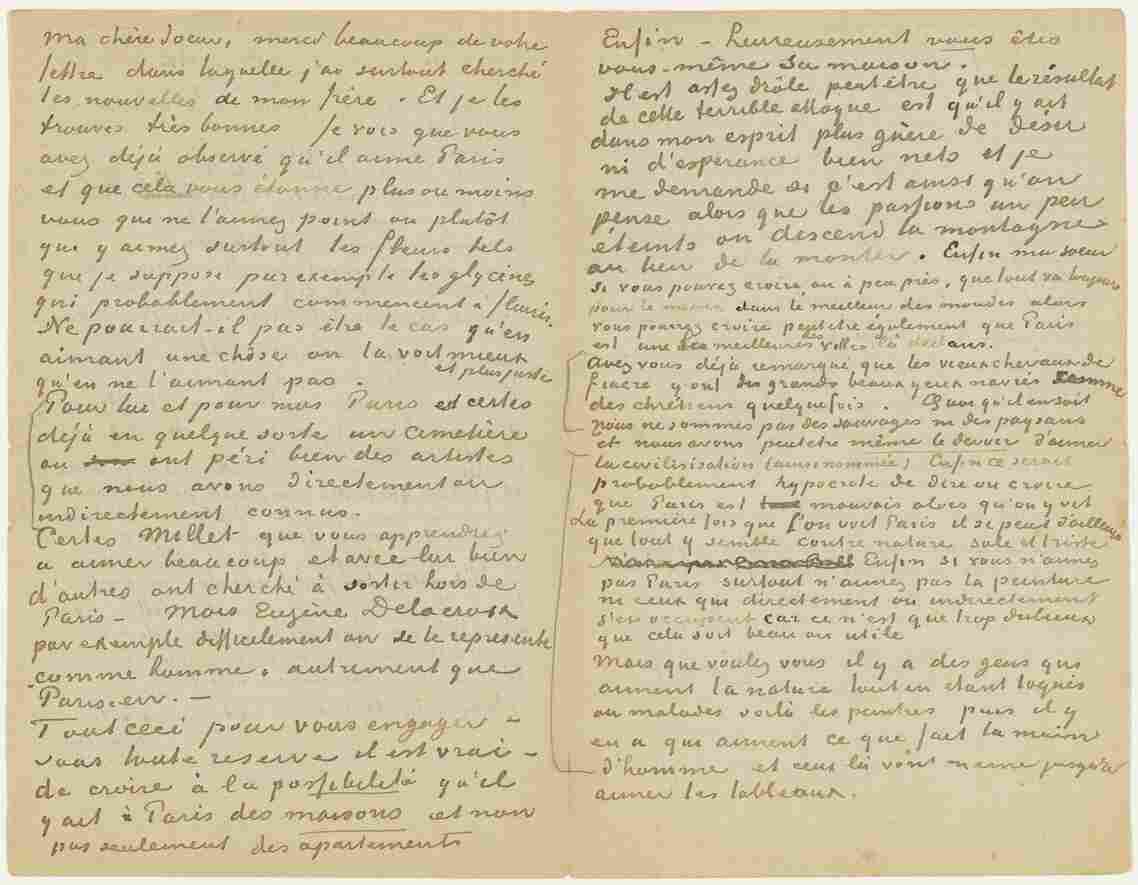 Ma chère soeur, merci beaucoup de votre
lettre dans laquelle j'ai surtout cherché
les nouvelles de mon frère. Et je les
trouve très bonnes Je vois que vous
avez déjà observé qu'il aime Paris
et que cela vous étonne plus ou moins
vous que ne l'aimez point ou plutôt
que y aimez surtout les fleurs tels
que je suppose par exemple les glycines
qui probablement commencent à fleurir.
Ne pourrait-il pas être le cas qu'en
aimant une chôse on la voit mieux
et plus juste
qu'en ne l'aimant pas.
Pour lui et pour moi Paris est certes
déjà en quelque sorte un cimetière
où ont péri bien des artistes
que nous avons directement ou
indirectement connus.
Certes Millet que vous apprendrez
a aimer beaucoup et avec lui bien
d'autres ont cherché à sortir hors de
Paris – Mais Eugène Delacroix
par exemple difficilement on se le représente
comme homme, autrement que
Parisien. –
Tout ceci pour vous engager –
sous toute reserve il est vrai –
de croire à la possibilité qu'il
y ait à Paris des maisons et non
pas seulement des apartements
Enfin – heureusement vous êtes
vous-même sa maison.
Il est assez drôle peut être que le résultat
de cette terrible attaque est qu'il y ait
dans mon esprit plus guère de désir
ni d'espérance bien nets et je
me demande si c'est ainsi qu'on
pense alors que les passions un peu
éteints on descend la montagne
au lieu de la monter. Enfin ma soeur
si vous pouvez croire, ou à peu près, que tout va toujours
pour le mieux dans le meilleur des mondes alors
vous pourrez croire peutetre également que Paris
est une des meilleures villes là dedans.
Avez vous déjà remarqué que les vieux chevaux de
fiacre y ont des grands beaux yeux navrés comme
des chrétiens quelquefois. Quoi qu'il en soit
nous ne sommes pas des sauvages ni des paysans
et nous avons peutetre même le devoir d'aimer
la civilisation (ainsi nommée) Enfin ce serait
probablement hypocrite de dire ou croire
que Paris est mauvais alors qu'on y vit
La première fois que l'on voit Paris il se peut d'ailleurs
que tout y semble contre nature sale et triste
Enfin si vous n'aimez
pas Paris surtout n'aimez pas la peinture
ni ceux qui directement ou indirectement
s'en occupent car ce n'est que trop dubieux
que cela soit beau ou utile
Mais que voulez vous il y a des gens qui
aiment la nature tout en étant toqués
ou malades voilà les peintres puis il y
en a qui aiment ce que fait la main
d'homme et ceux là vont même jusqu'à
aimer les tableaux.